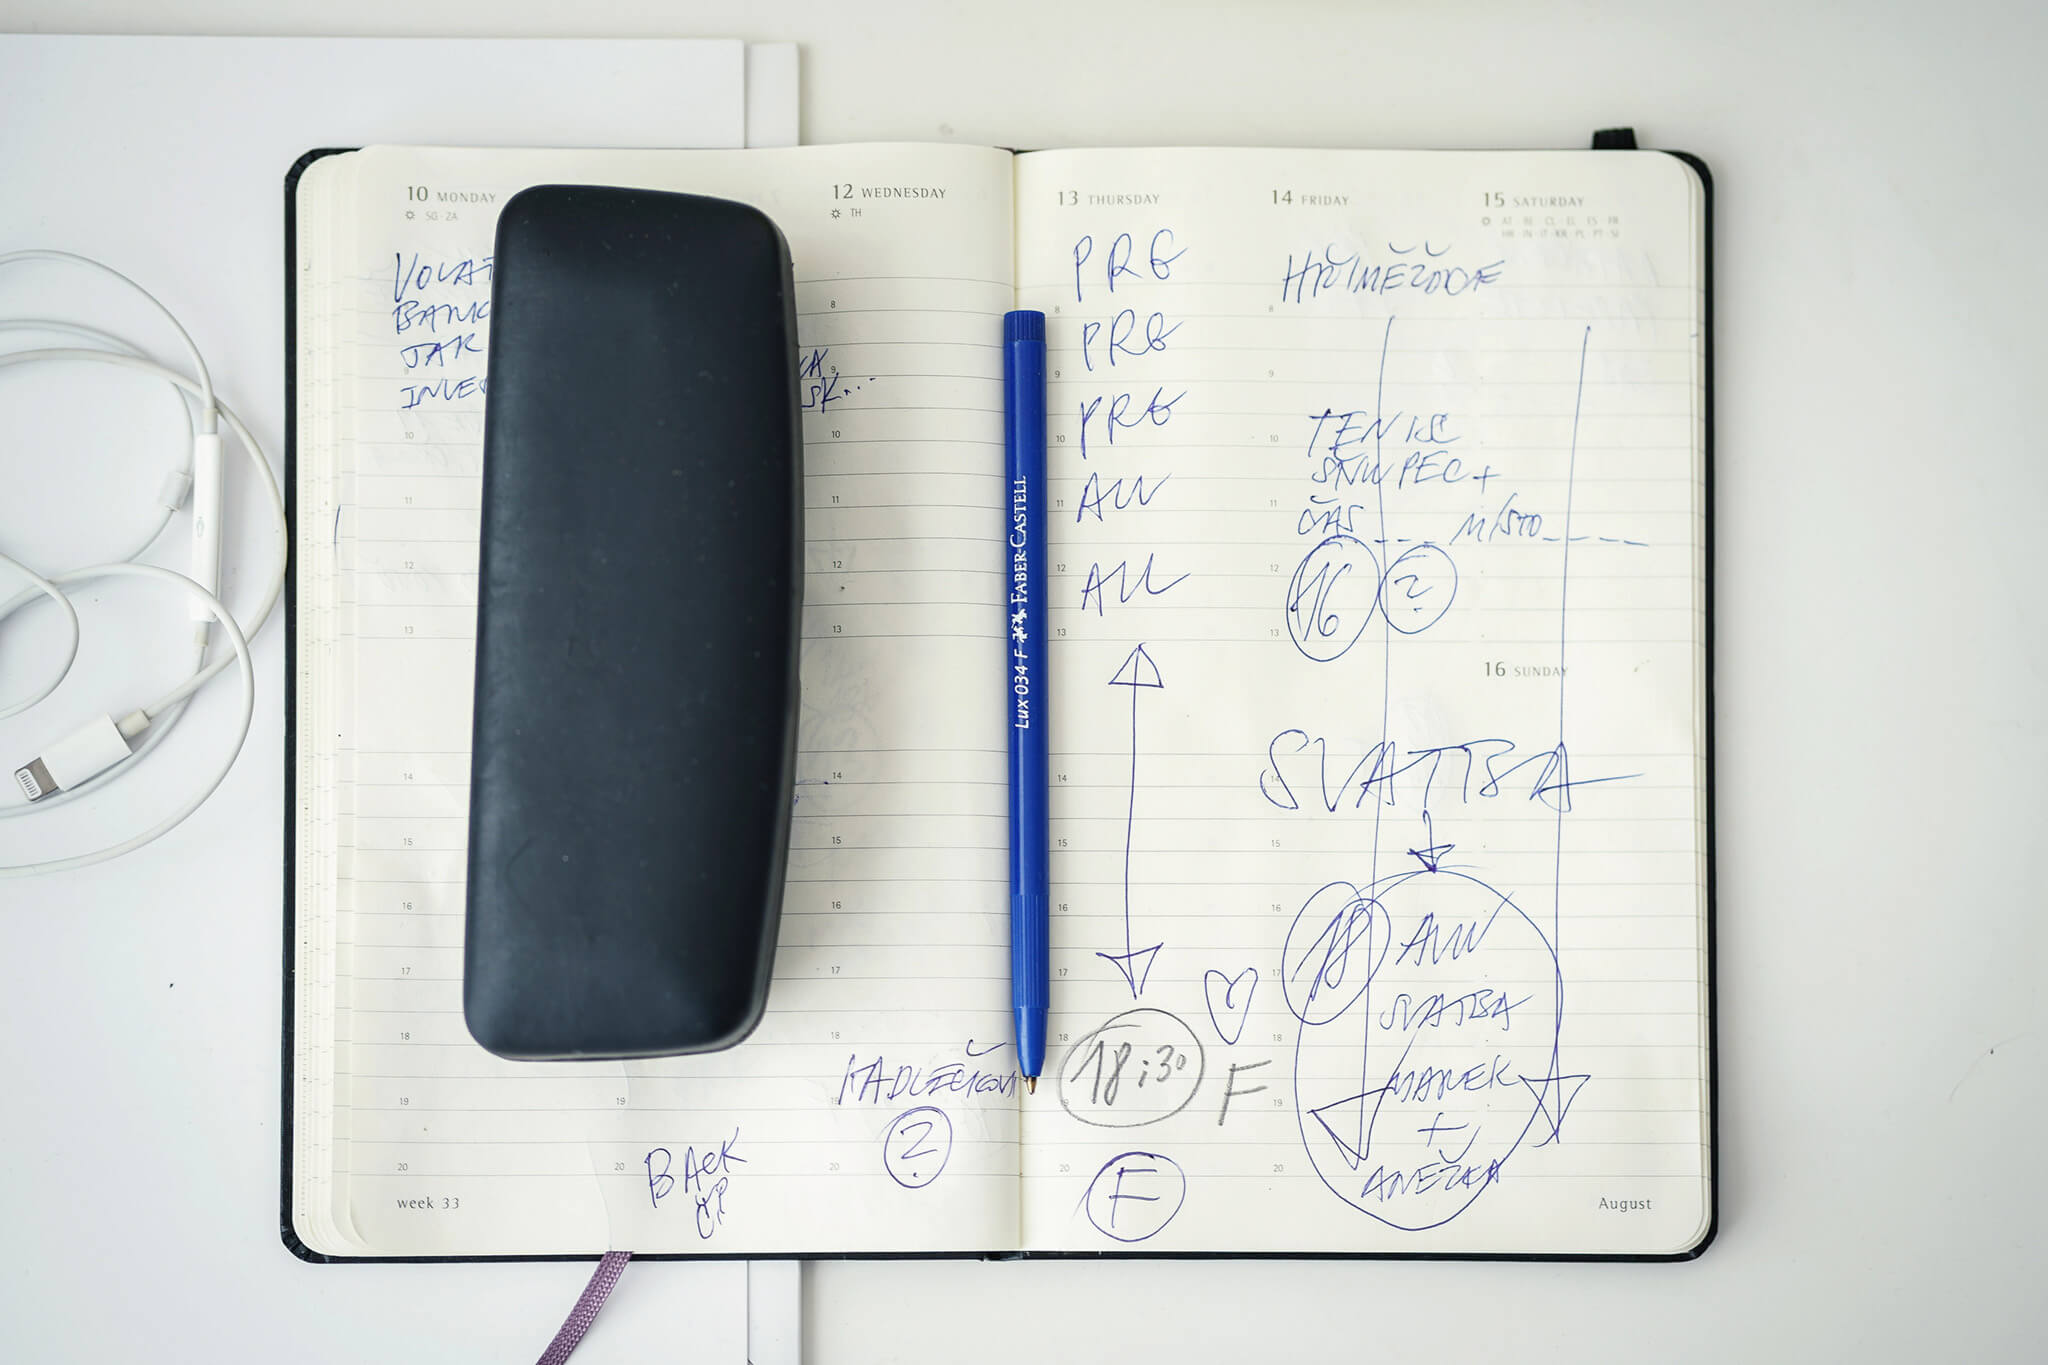 10 MONDAY
SG - ZA
VOLAT
BANK
JAR
INVES
8
9
10
11
12
13
14
15
16
17
18
19
20
week 33
BACK
ČP
12 WEDNESDAY
TH
SK...
?
13 THURSDAY
PRG
PRG
PRG
ALL
ALL
18:30
F
F
Lux 034 F FABER-CASTELL
14 FRIDAY
TENIS
ČAS
MÍSTO
16
?
SVATBA
18
SVATBA
MAREK
+
ANEŽKA
15 SATURDAY
AT - BE - CL - EL - ES - FR
HR - IN - IT - KR - PL - PT - SI
16 SUNDAY
August